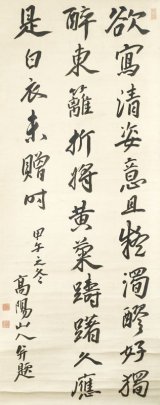 欲寫清姿意且慵濁醪好獨
醉東籬折將黃菊躊躇久應
是白衣未贈時
甲午之冬
高陽山人并題